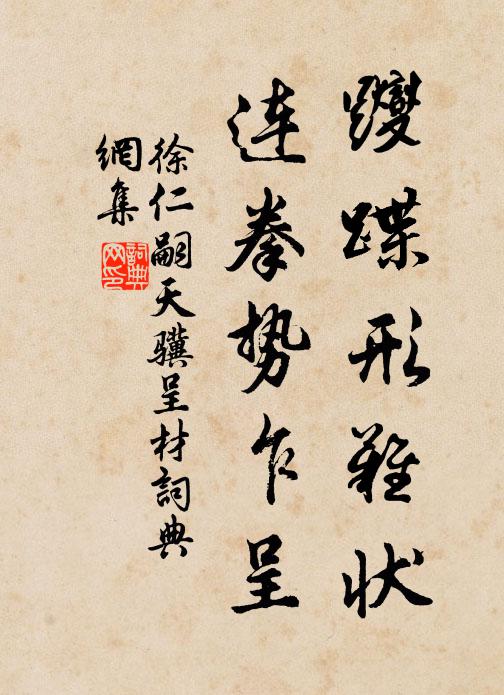 躞蹀形难状
连拳势乍呈
徐仁嗣天骥呈材詞典
網集
詞典
网印